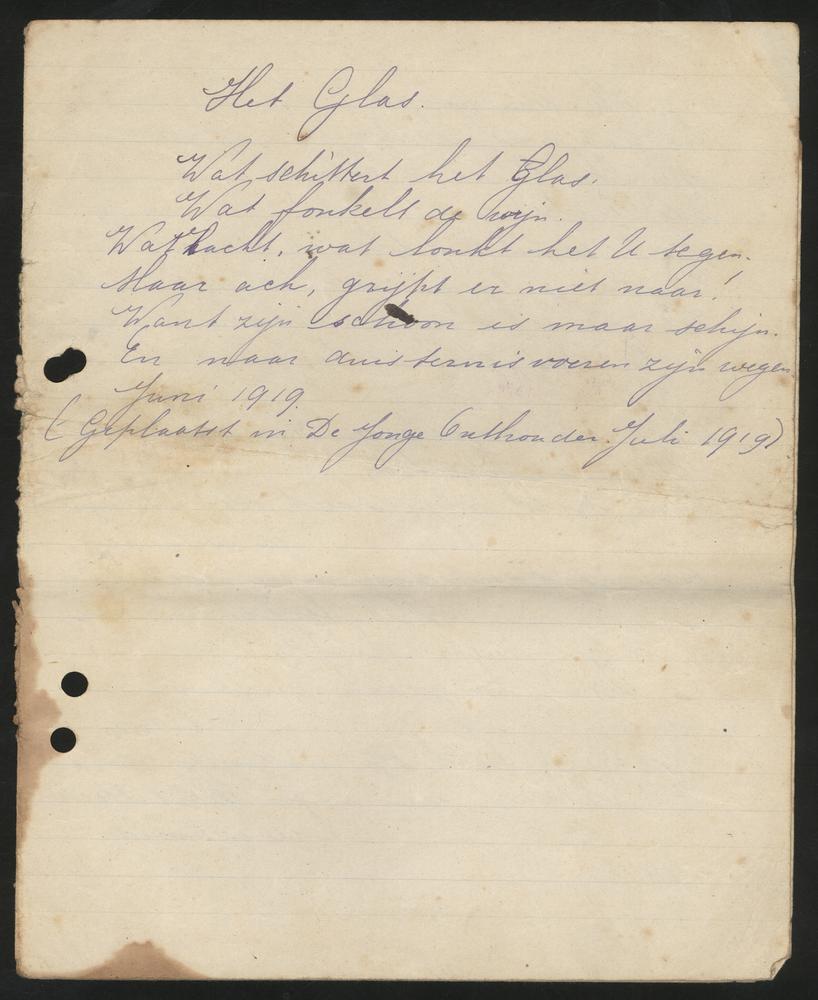 Het Glas.
Wat schittert het Glas.
Wat fonkelt de wijn.
Wat lacht, wat lonkt het U tegen.
Maar ach, grijpt er niet naar!
Want zijn schoon is maar schijn.
En naar duisternis voeren zijn wegen
Juni 1919.
(Geplaatst in De Jonge Onthouder. Juli 1919).